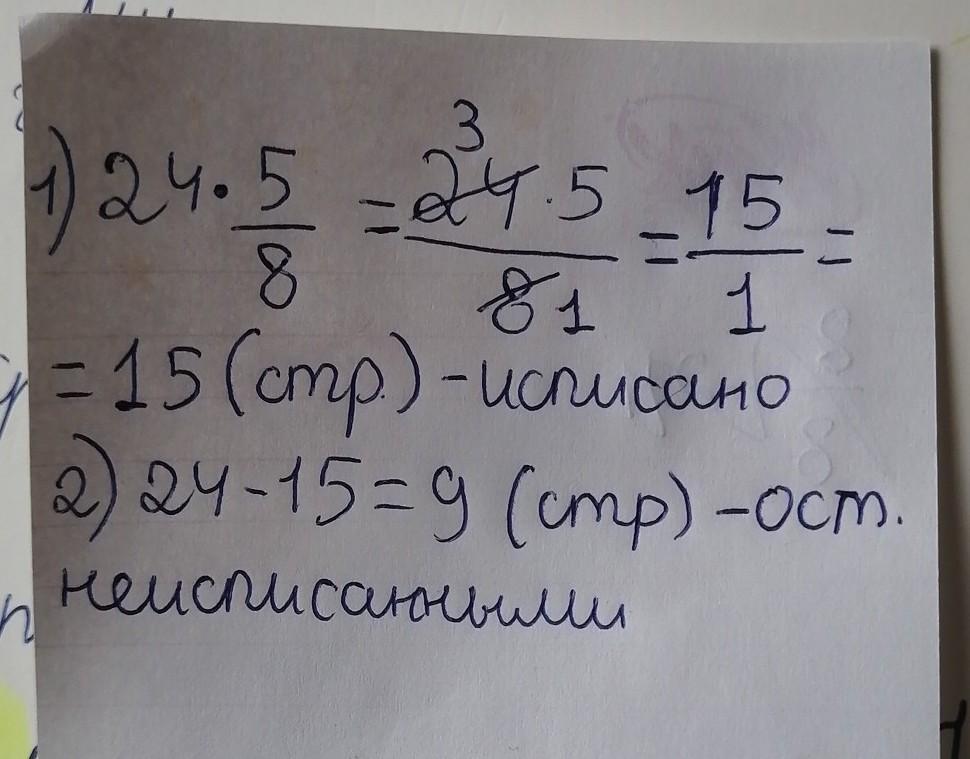 1) 24 · 5/8 = 24 3 · 5 / 8 1 = 15/1 =
= 15 (стр.) - исписано
2) 24 - 15 = 9 (стр) - ост.
неисписанными